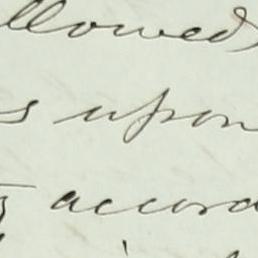 llowed
s upon
accord